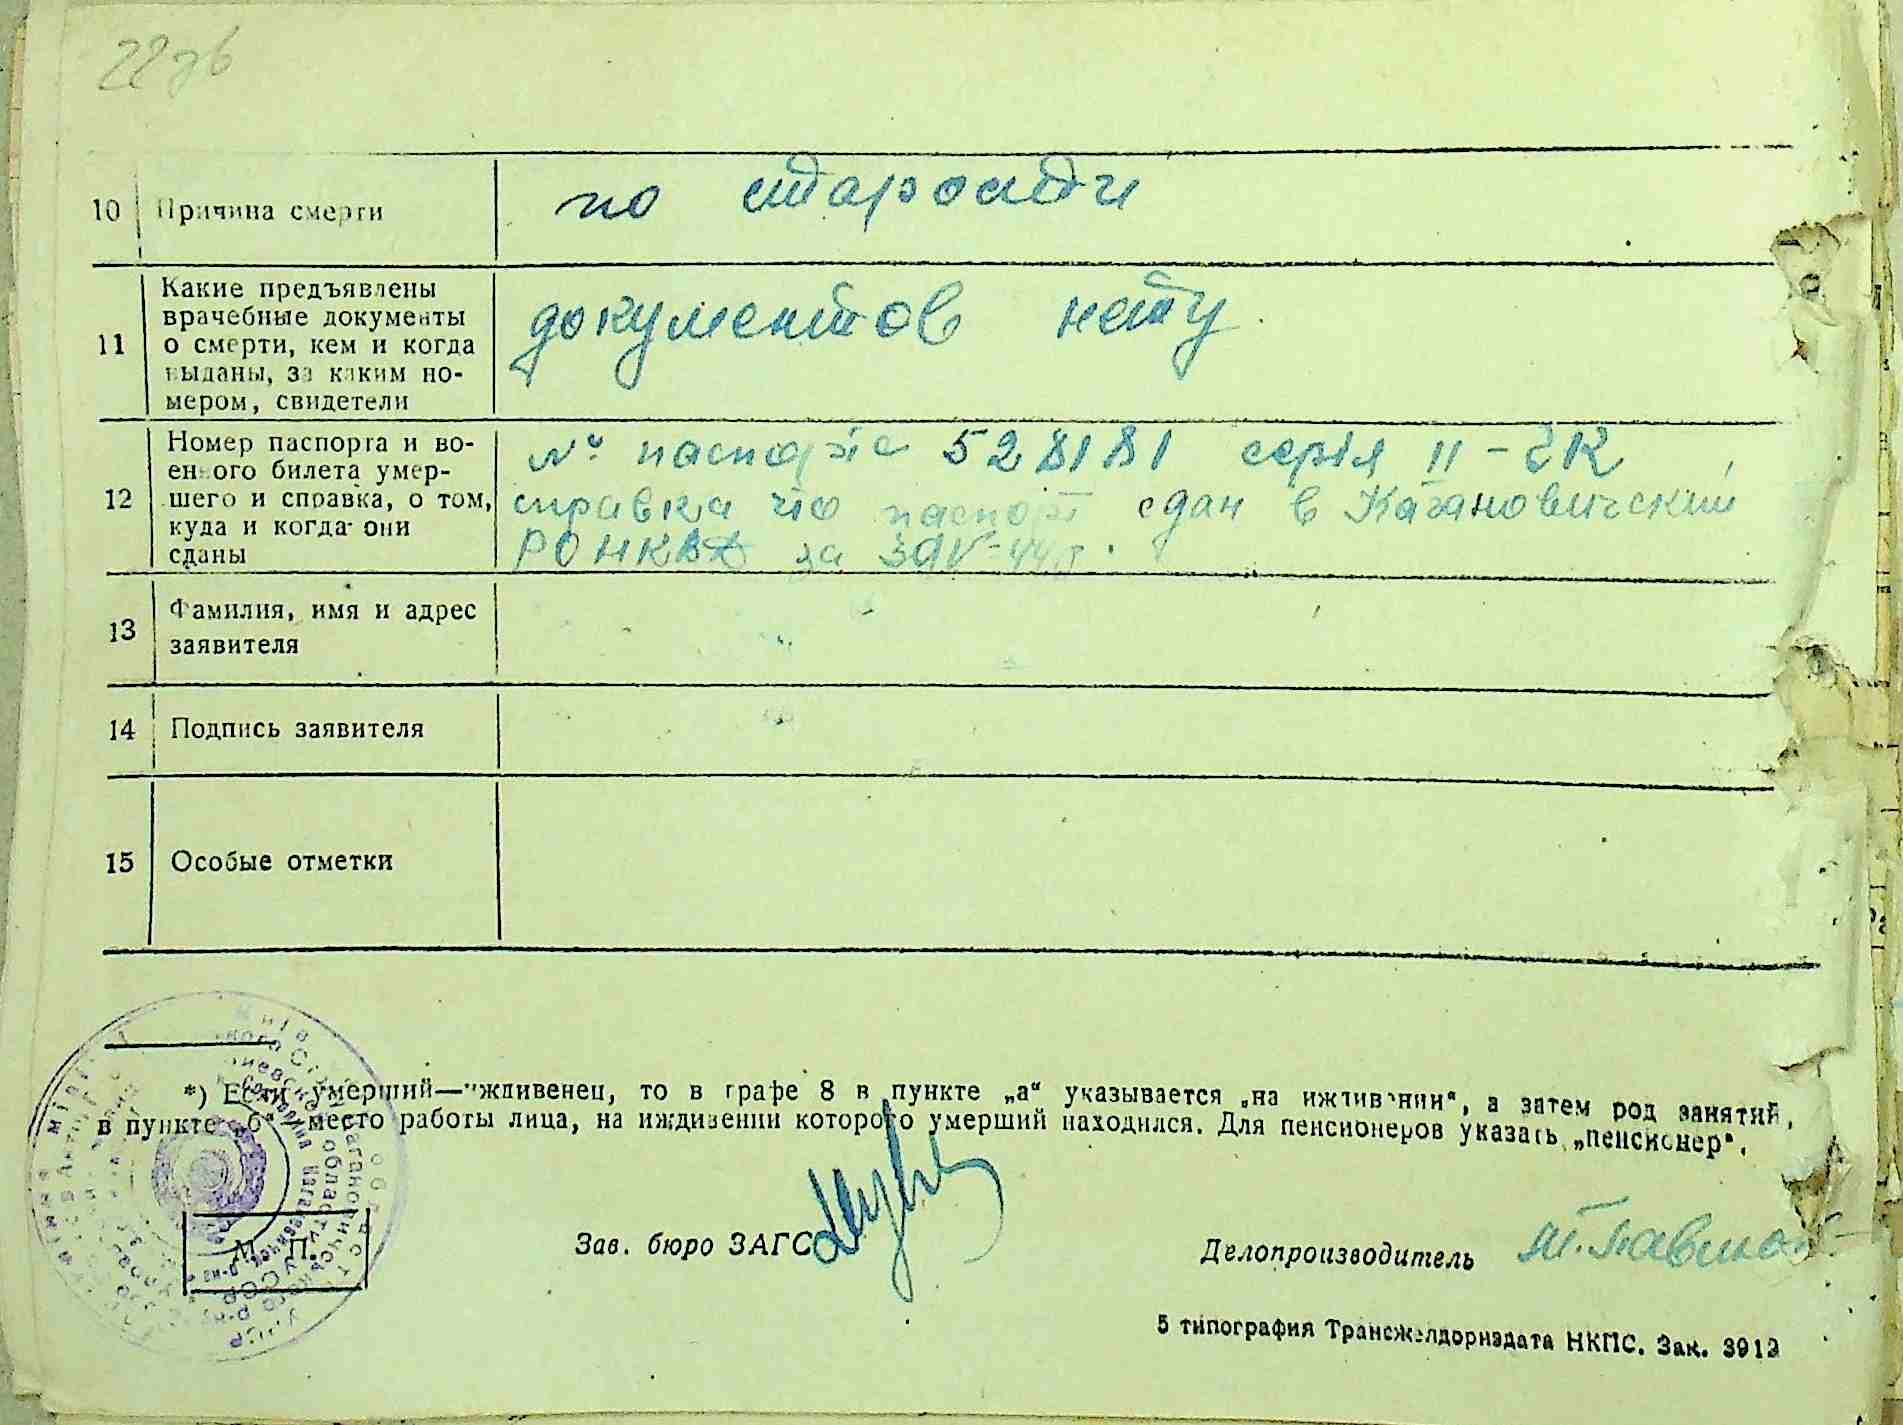 22зв
10 Причина смерти
по старости
Какие предъявлены
врачебные документы
11 о смерти, кем и когда
выданы, за каким но-
мером, свидетели
документов нету
Номер паспорта и во-
енного билета умер-
12 шего и справка, о том,
куда и когда они
сданы
№ паспорта 528181 серія II-ЕК
справка что паспорт сдан в Кагановичский
РОНКВД за
13 Фамилия, имя и адрес
заявителя
14 Подпись заявителя
15 Особые отметки
*) Если умерший—иждивенец, то в графе 8 в пункте „а“ указывается „на иждивении“, а затем род занятий,
в пункте „б“ место работы лица, на иждивении которого умерший находился. Для пенсионеров указать „пенсионер“.
М. П.
Зав. бюро ЗАГС
Делопроизводитель
5 типография Трансжелдориздата НКПС. Зак. 3912